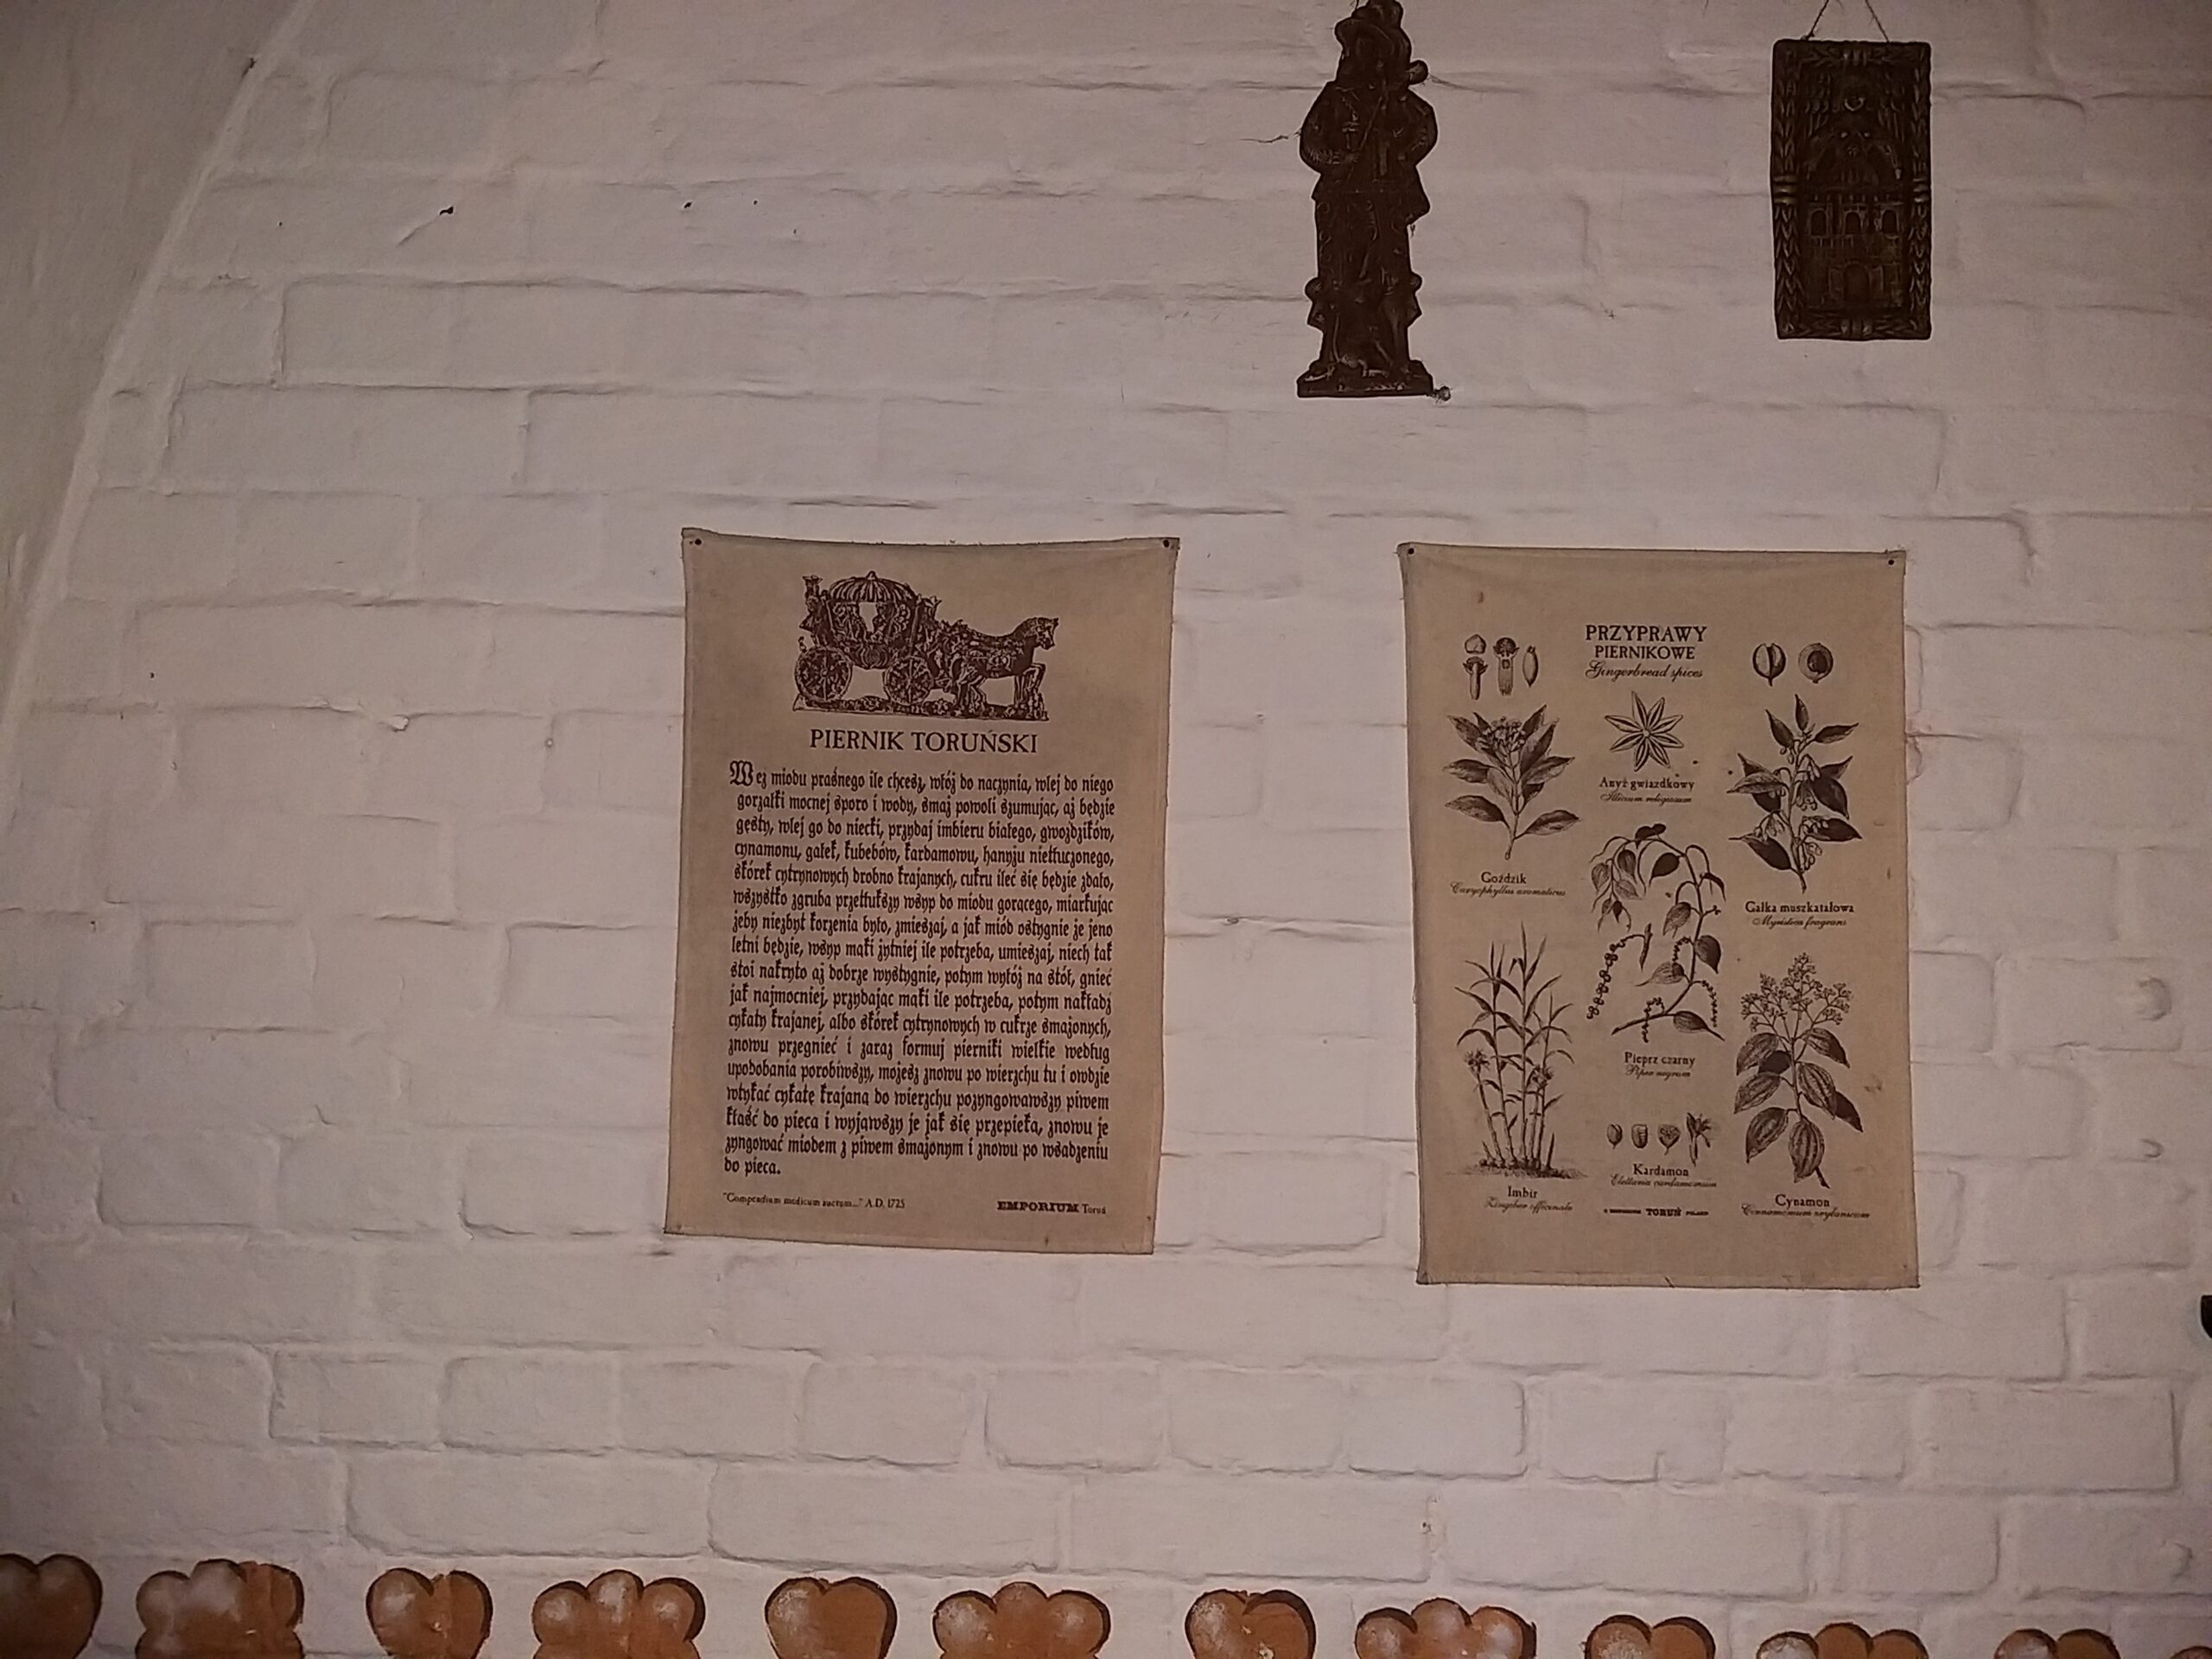 PIERNIK TORUŃSKI
Weź miodu praśnego ile chcesz, włój do naczynia, wlej do niego
gorzałki mocnej sporo i wody, smaż powoli szumując, aż będzie
gęsty, wlej go do niecki, przydaj imbieru białego, gwoździków,
cynamonu, gałek, kubebów, kardamonu, hanyżu nietłuczonego,
skórek cytrynowych drobno krajanych, cukru ileć się będzie zdało,
wszystko zgruba przetłukszy wsyp do miodu gorącego, miarkując
żeby niezbyt korzenia było, zmieszaj, a jak miód ostygnie że jeno
letni będzie, wsyp mąki żytniej ile potrzeba, umieszaj, niech tak
stoi nakryto aż dobrze wystygnie, potym wyłój na stół, gnieć
jak najmocniej, przydając mąki ile potrzeba, potym nakładź
cykaty krajanej, albo skórek cytrynowych w cukrze smażonych,
znowu przegnieć i zaraz formuj pierniki wielkie według
upodobania porobiwszy, możesz znowu po wierzchu tu i owdzie
wtykać cykatę krajaną do wierzchu pozyngowawszy piwem
kłaść do pieca i wyjąwszy je jak się przepieką, znowu je
zyngować miodem z piwem smażonym i znowu po wsadzeniu
do pieca.
"Compendium medicum auctum..." A.D. 1725
EMPORIUM Toruń
PRZYPRAWY
PIERNIKOWE
Gingerbread spices
Anyż gwiazdkowy
Illicium religiosum
Goździk
Caryophyllus aromaticus
Gałka muszkatałowa
Myristica fragrans
Pieprz czarny
Piper nigrum
Kardamon
Elettaria cardamomum
Imbir
Zingiber officinale
Cynamon
Cinnamomum zeylanicum
TORUŃ POLAND